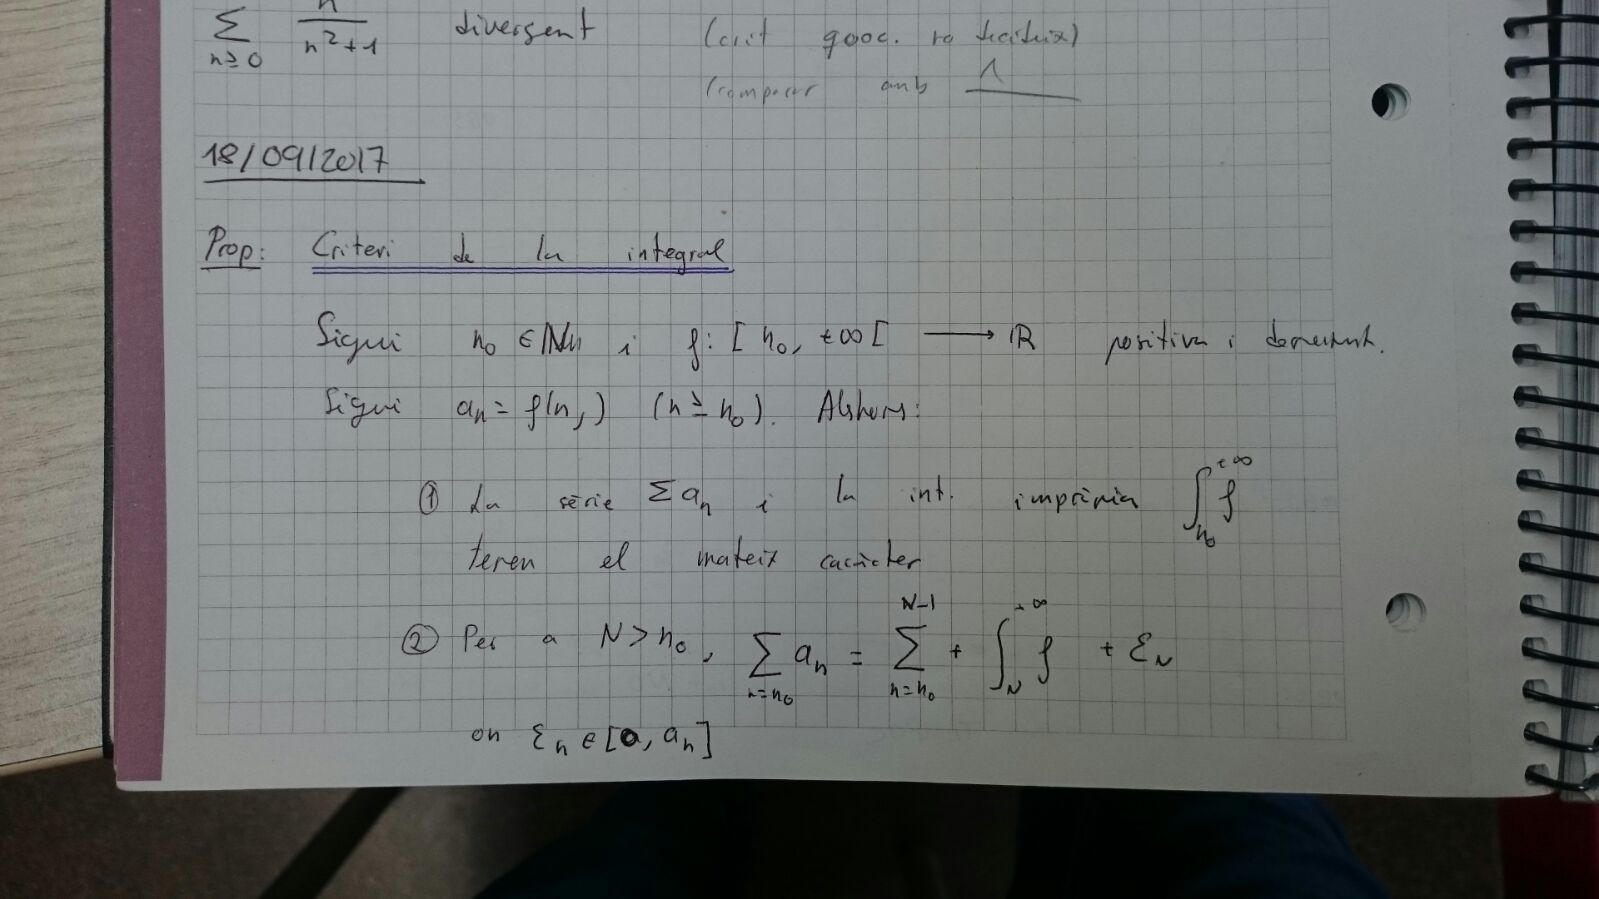 ∑ n≥0 n/(n²+1) divergent (crit quoc. no decideix)
(comparar amb 1
18/09/2017
Prop: Criteri de la integral
Sigui n₀ ∈ ℕ i f: [n₀, +∞[ → ℝ positiva i decreixent.
Sigui aₙ = f(n) (n ≥ n₀). Alshores:
① La sèrie Σaₙ i la int. impròpia ∫_{n₀}^{+∞} f
tenen el mateix caràcter
② Per a N > n₀, ∑_{n=n₀} aₙ = ∑_{n=n₀}^{N-1} + ∫_N^{+∞} f + ε_N
on εₙ ∈ [0, aₙ]